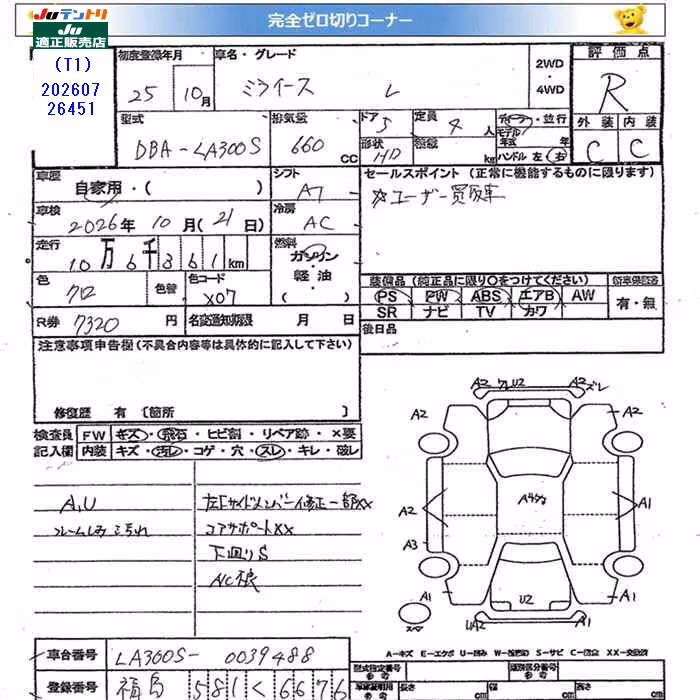 Juテントリ
適正販売店
(T1)
202607
26451
完全ゼロ切りコーナー
初度登録年月
25 10月
車名・グレード
ミライース L
2WD
・
4WD
評価点
R
外装 内装
C C
型式
DBA-LA300S
排気量
660 cc
ドア 5
形状 HD
定員 4人
ディーラー・並行
モデル 年式 年
ハンドル 左 右
車歴
自家用・( )
シフト
AT
セールスポイント (正常に機能するものに限ります)
☆ユーザー買取車
車検
2026年 10月(21日)
冷房
AC
走行
10万6千861km
燃料
ガソリン
・
軽油
・
( )
色
クロ
色替
色コード
X07
装備品 (純正品に限り○をつけてください)
PS PW ABS エアB AW
SR ナビ TV カワ
有・無
R券 7320円
名変通知期限 月 日
後日品
注意事項申告欄(不具合内容等は具体的に記入して下さい)
修復歴 有 〔箇所 〕
検査員
記入欄
FW キズ・飛石・ヒビ割・リペア跡・×要
内装 キズ・汚レ・コゲ・穴・スレ・キレ・破レ
A,U
左Fサイドメンバー修正一部XX
コアサポートXX
下廻りS
A2 ワレU2 A2ズレ
A2 A2
A2
A1
A3
A1 A1
U2
UA2
A-キズ E-エクボ U-凹み W-波凹み S-サビ C-腐食 XX-交換済
車台番号
LA300S- 0039488
登録番号
福島 581 く 6676
型式指定番号
参考
類別区分番号
参考
長さ cm 幅 cm 高さ cm